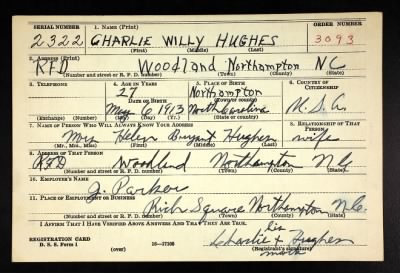 SERIAL NUMBER 1. NAME (Print) ORDER NUMBER
2322 CHARLIE WILLY HUGHES 3093
(First) (Middle) (Last)
2. ADDRESS (Print)
RFD Woodland Northampton NC
(Number and street or R. F. D. number) (Town) (County) (State)
3. TELEPHONE 4. AGE IN YEARS 5. PLACE OF BIRTH 6. COUNTRY OF CITIZENSHIP
27 Northampton
DATE OF BIRTH (Town or county)
May 6 1913 North Carolina U.S.A.
(Exchange) (No.) (Mo.) (Day) (Yr.) (State or country)
7. NAME OF PERSON WHO WILL ALWAYS KNOW YOUR ADDRESS 8. RELATIONSHIP OF THAT PERSON
Mrs Helen Bryant Hughes wife
(Mr., Mrs., Miss) (First) (Middle) (Last)
9. ADDRESS OF THAT PERSON
RFD Woodland Northampton NC
(Number and street or R. F. D. number) (Town) (County) (State)
10. EMPLOYER'S NAME
J. Parker
11. PLACE OF EMPLOYMENT OR BUSINESS
Rich Square Northampton N.C.
(Number and street or R. F. D. number) (Town) (County) (State)
I AFFIRM THAT I HAVE VERIFIED ABOVE ANSWERS AND THAT THEY ARE TRUE.
his
REGISTRATION CARD Charlie x Hughes
D. S. S. Form 1 (over) 16—17105 (Registrant's signature)
mark